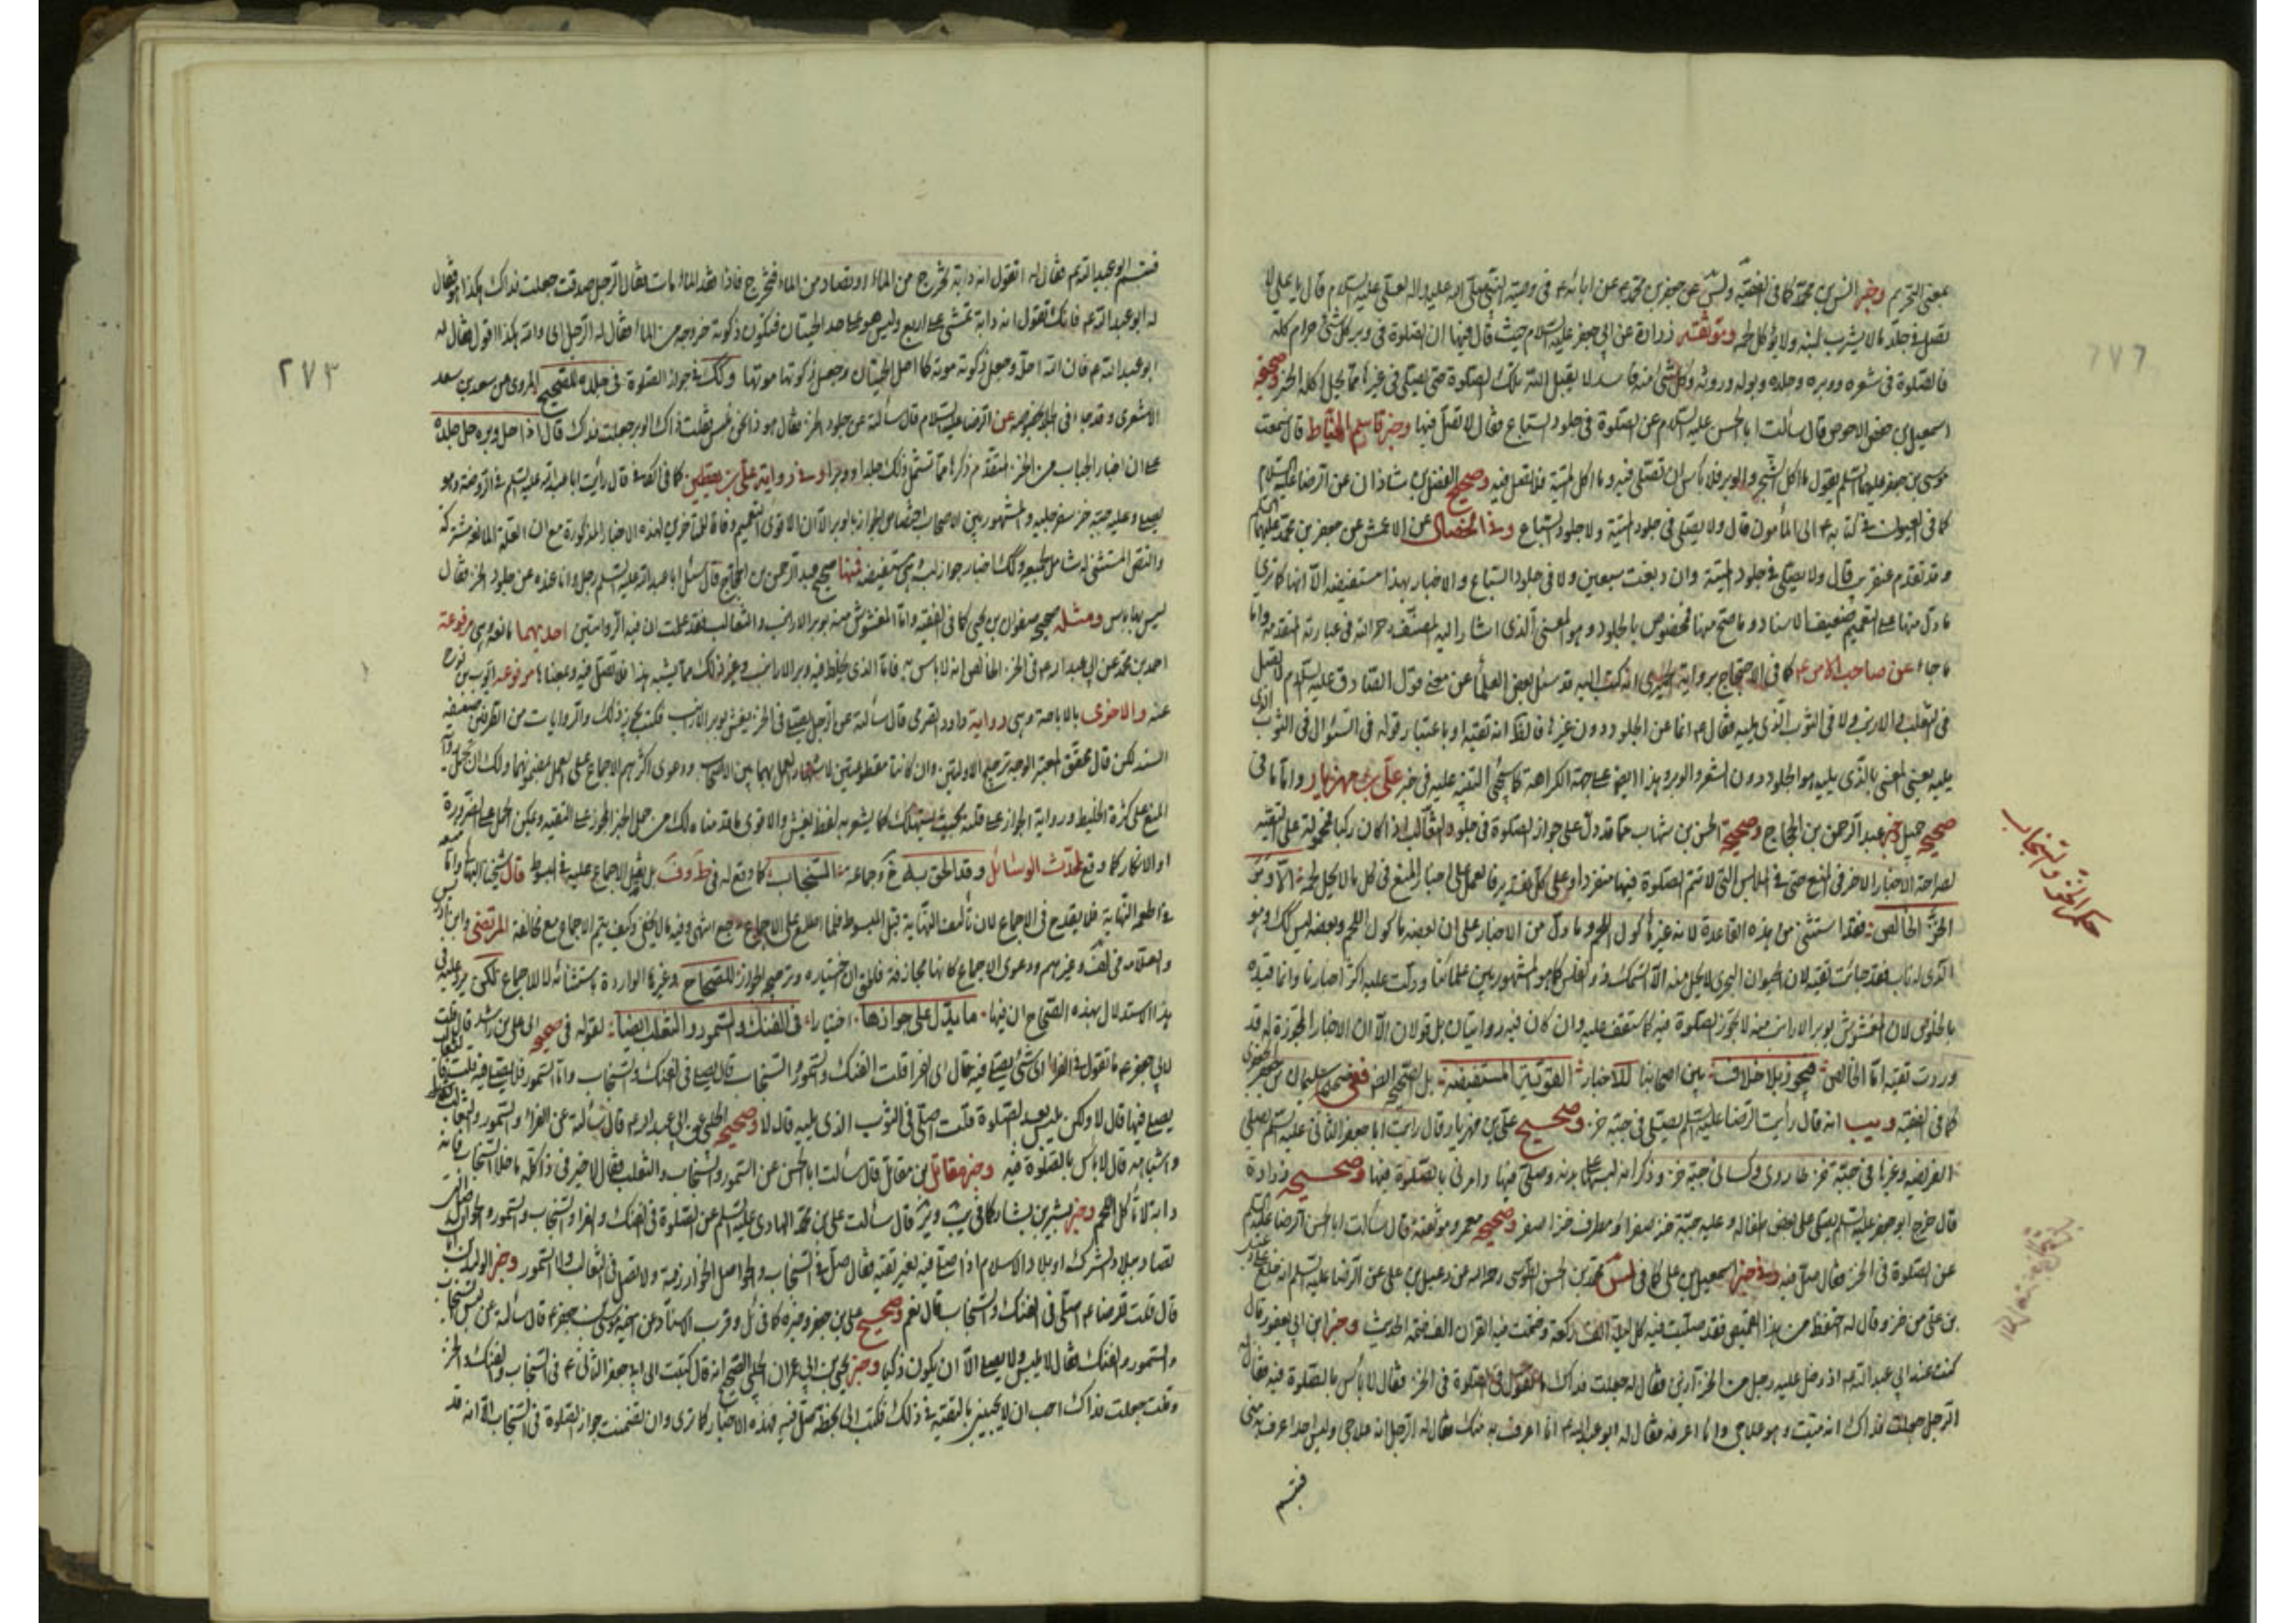 بمعنى التحريم وخبر انس بن محمد كما في الفقيه عن جعفر بن محمد عن ابائه ع في وصية النبي صلى الله عليه واله لعلي عليه السلام قال يا علي لا
تصل في جلد ما لا يشرب لبنه ولا يؤكل لحمه وموثقة زرارة عن ابي جعفر عليه السلام حيث قال فيها ان الصلوة في وبر كل شئ حرام اكله
فالصلوة في شعره ووبره وجلده وبوله وروثه وكل شئ منه فاسد لا يقبل الله تلك الصلوة حتى يصلى في غيره مما يحل اكله الخبر وصحيحة
اسمعيل بن الاحوص قال سالت ابا الحسن عليه السلام عن الصلوة في جلود السباع فقال لا تصل فيها وخبر قاسم الخياط قال سمعت
موسى بن جعفر عليهما السلم يقول ما اكل الشجر والوبر فلا باس ان تصلى فيه وما اكل الميتة فلا تصل فيه وصحيح الفضل بن شاذان عن الرضا عليه السلام
كما في العيون في كتابه الى المأمون قال ولا يصلى في جلود الميتة ولا جلود السباع وفي الخصال عن الاعمش عن جعفر بن محمد عليهما
وقد تقدم قال ولا يصلى في جلود الميتة وان دبغت سبعين ولا في جلود السباع والاخبار بهذا مستفيضة الا انها كما ترى
ما دل منها على التعميم ضعيفة الاسناد وما صح منها مخصوص بالجلود وهو المعنى الذي اشار اليه المصنف في عبارته المتقدمة واما
ما جاء عن صاحب الامر ع كما في الاحتجاج برواية الحميري انه كتب اليه قد سئل بعض العلماء عن معنى قول الصادق عليه السلام لا يصلى
في الثعلب ولا الارنب ولا في الثوب الذي يليه فقال ع انما عن الجلود دون غيرها او باعتبار قوله في السؤال في الثوب الذي
يليه يعني المعنى بالذي يليه هو الجلود دون الشعر والوبر وهذا ايضا على جهة الكراهة عليه في خبر علي بن مهزيار واما ما في
صحيح جميل وخبر عبد الرحمن بن الحجاج وصحيح الحسن بن شهاب مما قد دل على جواز الصلوة في جلود الثعالب اذا كان ذكيا فمحمولة على التقية
لصراحة الاخبار الاخر في المنع حتى في الملابس التي لا تتم الصلوة فيها منفردا وعلى كل تقدير فالعمل على اخبار المنع في كل ما لا يحل لحمه الا وبر
الخز الخالص فقد استثنى من هذه القاعدة لانه غير مأكول اللحم وما دل من الاخبار على ان بعضه مأكول اللحم وبعضه ليس كك وهو
الذي له ناب فقد جائت تقية لان الحيوان البحري لا يحل منه الا السمك ذو الفلس كما هو المشهور بين علمائنا ودلت عليه اكثر اخبارنا وانما قيده
بالخلوص لان المغشوش بوبر الارانب منه لا يجوز الصلوة فيه كما ستقف عليه وان كان فيه روايتان بل قولان الا ان الاخبار المجوزة له قد
وردت تقية اما الخالص فيجوز بلا خلاف بين اصحابنا للاخبار القوية المستفيضة بل الصحيح ففي صحيح سليمان بن جعفر الجعفري
كما في الفقيه ويب انه قال رأيت الرضا عليه السلم يصلي في جبة خز وصحيح علي بن مهزيار قال رأيت ابا جعفر الثاني عليه السلم يصلي
الفريضة وغيرها في جبة خز طاروي وكساني جبة خز وذكر انه لبسها على بدنه وصلى فيها وامرني بالصلوة فيها وصحيحة زرارة
قال خرج ابو جعفر عليه السلم يصلي على بعض اطفاله وعليه جبة خز صفراء ومطرف خز اصفر وصحيح معمر قال سالت ابا الحسن الرضا عليه السلم
عن الصلوة في الخز فقال صل فيه وفي خبر اسمعيل بن علي كما في محمد بن الحسن الطوسي عن دعبل بن علي عن الرضا عليه السلم انه خلع على
بن علي من خز وقال له احتفظ بهذا القميص فقد صليت فيه كل ليلة الف ركعة وختمت فيه القران الف ختمة الحديث وخبر ابن ابي يعفور قال
كنت عند ابي عبد الله ع اذ دخل عليه رجل من الخزازين فقال له جعلت فداك ما تقول في الصلوة في الخز فقال لا بأس بالصلوة فيه فقال له
الرجل جعلت فداك انه ميت وهو علاجي وانا اعرفه فقال له ابو عبد الله ع انا اعرف به منك فقال له الرجل انه علاجي وليس احد اعرف به مني
فتبسم
حكم الخز والسنجاب
٢٧٣
فتبسم ابو عبد الله ع فقال له اتقول انه دابة تخرج من الماء او تصاد من الماء فتخرج فاذا فقد الماء مات فقال الرجل صدقت جعلت فداك هكذا هو فقال
له ابو عبد الله ع فانك تقول انه دابة تمشي على اربع وليس هو على حد الحيتان فيكون ذكوته خروجه من الماء فقال له الرجل اي والله هكذا اقول فقال له
ابو عبد الله ع فان الله احله وجعل ذكوته موته كما احل الحيتان وجعل ذكوتها موتها وكك في جواز الصلوة في جلده للصحيح المروي عن سعد بن سعد
الاشعري عن الرضا عليه السلام قال سألته عن جلود الخز فقال هو ذا نحن نلبس فقلت ذاك الوبر جعلت فداك قال اذا حل وبره حل جلده
على ان اخبار الجباب من الخز المتقدم ذكرها مما تشمل ذلك جلدا ووبرا وفي رواية علي بن يقطين كما في قال رأيت ابا عبد الله عليه السلم في الروضة وهو
يصلي وعليه جبة خز سفرجلية والمشهور بين الاصحاب اختصاص الجواز بالوبر الا ان الاقوى التعميم وفاقا للمتأخرين لهذه الاخبار المذكورة مع ان العلة المانعة مشتركة
والنص المستثنى له شامل للجميع وكك اخبار جواز لبسه وهي مستفيضة فمنها صحيح عبد الرحمن بن الحجاج قال سئل ابا عبد الله عليه السلم رجل وانا عنده عن جلود الخز فقال
ليس بها باس ومثله صحيح صفوان بن يحيى كما في الفقيه واما المغشوش منه بوبر الارانب والثعالب فقد علمت ان فيه الروايتين احديهما مانعة وهي مرفوعة
احمد بن محمد عن ابي عبد الله ع في الخز الخالص انه لا باس به فاما الذي يخلط فيه وبر الارانب وغير ذلك مما يشبه هذا فلا تصل فيه وبمعناها مرفوعة ايوب بن نوح
عنه والاخرى بالاباحة وهي رواية داود الصرمي قال سألته عن الرجل يصلي في الخز يغش بوبر الارانب فكتب يجوز ذلك والروايات من الطرفين ضعيفة
السند لكن قال محقق المعتبر الوجه ترجيح الاولتين وان كانتا مقطوعتين لاشتهار العمل بهما بين الاصحاب ودعوى اكثرهم الاجماع على العمل بمضمونهما ولك ان تحمل رواية
المنع على كثرة الخليط ورواية الجواز على قلته بحيث يستهلك كما يشعر به لفظ الغش والاقوى ما قدمناه لك من حمل الخبر المجوز على التقية ويمكن الحمل على الضرورة
او الانكار كما وقع لمحدث الوسائل وقد الحق به وجماعة السنجاب كما وقع له في ط بل نقل الاجماع عليه في المبسوط قال شيخنا البهائي واما
النهاية فلا يقدح في الاجماع لان تأليف النهاية قبل المبسوط فلما اطلع على الاجماع انتهى وفيه ما لا يخفى وكيف يتم الاجماع مع مخالفة المرتضى وابن ادريس
والعلامة في لف وغيرهم ودعوى الاجماع كانها مجازفة فللمص ان اختياره وترجيح الجواز للصحاح وغيرها الواردة باستثنائه لا للاجماع لكن يرد عليه في
هذا الاستدلال بهذه الصحاح ان فيها ما يدل على جوازها اختيارا في الفنك والسمور والثعلب ايضا لقوله في صحيحة ابي علي بن راشد قال قلت
لابي جعفر ع ما تقول في الفراء اي شئ يصلى فيه فقال اي الفراء قلت الفنك والسمور والسنجاب قال يصلى في الفنك والسنجاب واما السمور فلا يصلى فيه قلت فالثعالب
يصلى فيها قال لا ولكن يلبس بعد الصلوة قلت اصلي في الثوب الذي يليه قال لا وصحيح الحلبي عن ابي عبد الله ع قال سألته عن الفراء والسمور والسنجاب والثعالب
واشباهه قال لا بأس بالصلوة فيه وخبر مقاتل بن مقاتل قال سالت ابا الحسن عن السمور والسنجاب والثعلب فقال لا خير في ذا كله ما خلا السنجاب فانه
دابة لا تأكل اللحم وخبر بشير بن بشار كما في يب وئر قال سالت علي بن محمد الهادي عليه السلم عن الصلوة في الفنك والفراء والسنجاب والسمور والحواصل التي
تصاد ببلاد الشرك او بلاد الاسلام اذا اصلي فيه لغير تقية فقال صل في السنجاب والحواصل الخوارزمية ولا تصل في الثعالب ولا السمور وخبر الوليد بن ابان
قال قلت للرضا ع اصلي في الفنك والسنجاب قال نعم وصحيح علي بن جعفر وخبره كما في ئل وقرب الاسناد عن اخيه موسى بن جعفر ع قال سألته عن لبس السنجاب
والسمور والفنك فقال لا يلبس ولا يصلي الا ان يكون ذكيا وخبر يحيى بن ابي عمران الحلبي الصحيح انه قال كتبت الى ابي جعفر الثاني ع في السنجاب والفنك والخز
وقلت جعلت فداك احب ان لا تجيبني بالتقية في ذلك فكتب الي بخطه صل فيه فهذه الاخبار كما ترى وان تضمنت جواز الصلوة في السنجاب الا انه قد